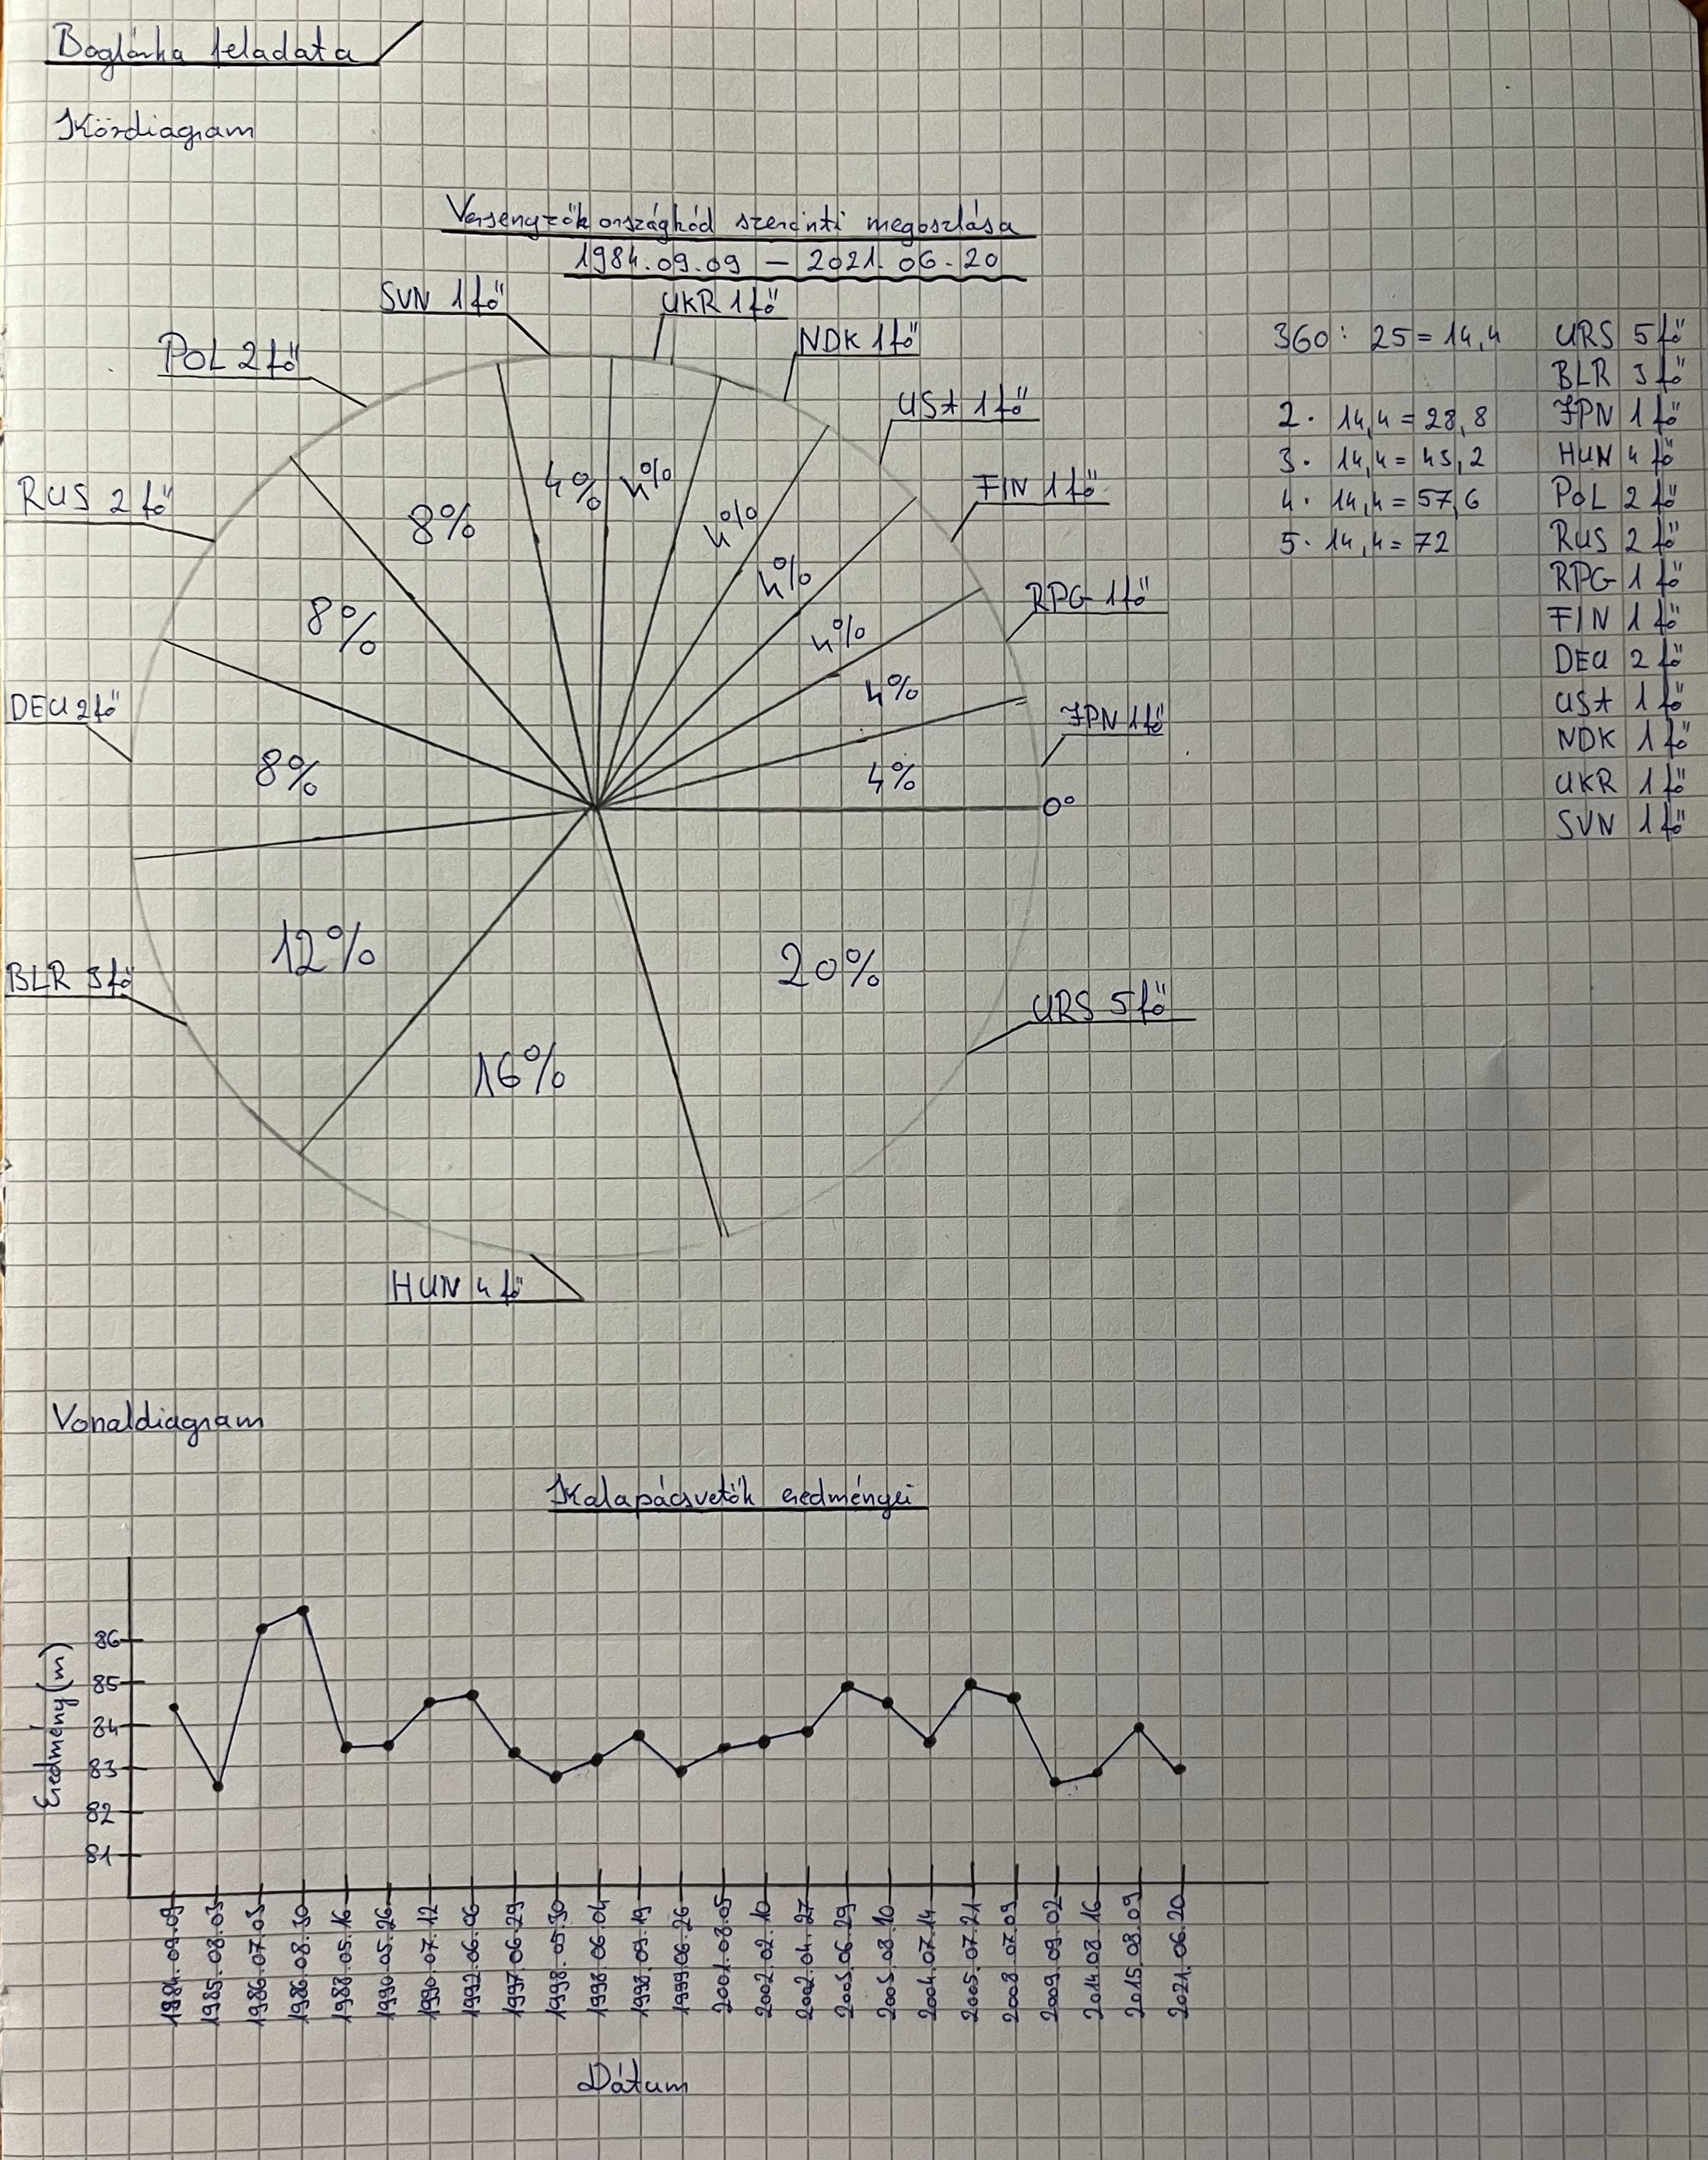 Boglárka feladata
Kördiagram
Versenyzők országkód szerinti megoszlása
1984.09.09 – 2021.06.20
SVN 1 fő
UKR 1 fő
NDK 1 fő
POL 2 fő
USA 1 fő
RUS 2 fő
FIN 1 fő
RPG 1 fő
DEU 2 fő
JPN 1 fő
0°
BLR 3 fő
URS 5 fő
HUN 4 fő
4%
4%
8%
4%
4%
8%
4%
4%
8%
4%
12%
20%
16%
360 : 25 = 14,4
2 · 14,4 = 28,8
3 · 14,4 = 43,2
4 · 14,4 = 57,6
5 · 14,4 = 72
URS 5 fő
BLR 3 fő
JPN 1 fő
HUN 4 fő
POL 2 fő
RUS 2 fő
RPG 1 fő
FIN 1 fő
DEU 2 fő
USA 1 fő
NDK 1 fő
UKR 1 fő
SVN 1 fő
Vonaldiagram
Kalapácsvetők eredményei
Eredmény (m)
86
85
84
83
82
81
1984.09.09
1985.08.03
1986.07.03
1986.08.30
1988.05.16
1990.05.26
1990.07.12
1992.06.06
1997.06.29
1998.05.30
1998.06.04
1998.09.19
1999.06.26
2001.08.05
2002.02.10
2002.04.27
2003.06.29
2003.08.10
2004.07.14
2005.07.21
2008.07.09
2009.09.02
2014.08.16
2015.08.09
2021.06.20
Dátum